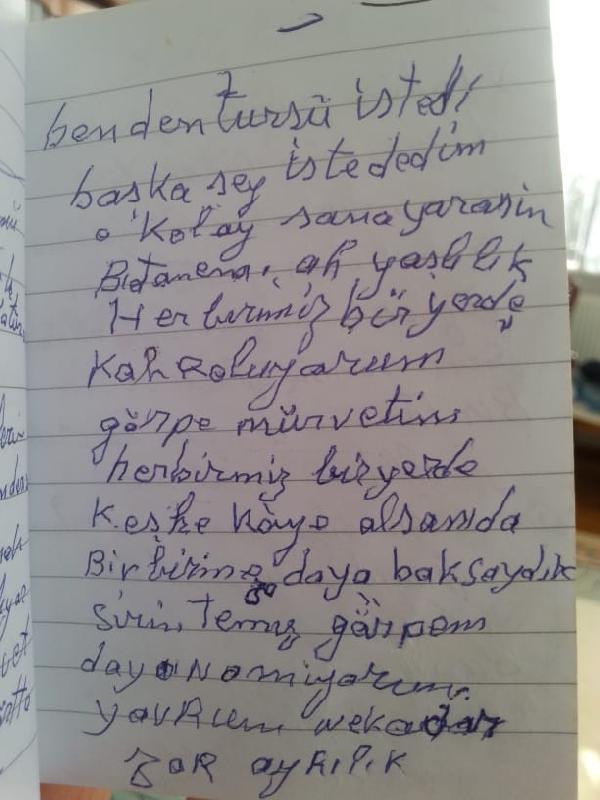 benden tursü istedi
baska sey istededim
o kolay sana yarasin
Bitanem, ah yaşlılık
Her birimiz bir yerde
Kahroluyorum
görpe mürvetim
herbirmiz bir yerde
Keşke köye alsamda
Birbirimize daya baksaydık
Sirin, Temiz görpem
dayanamiyorum
yavrum nekadar
zor ayrılık